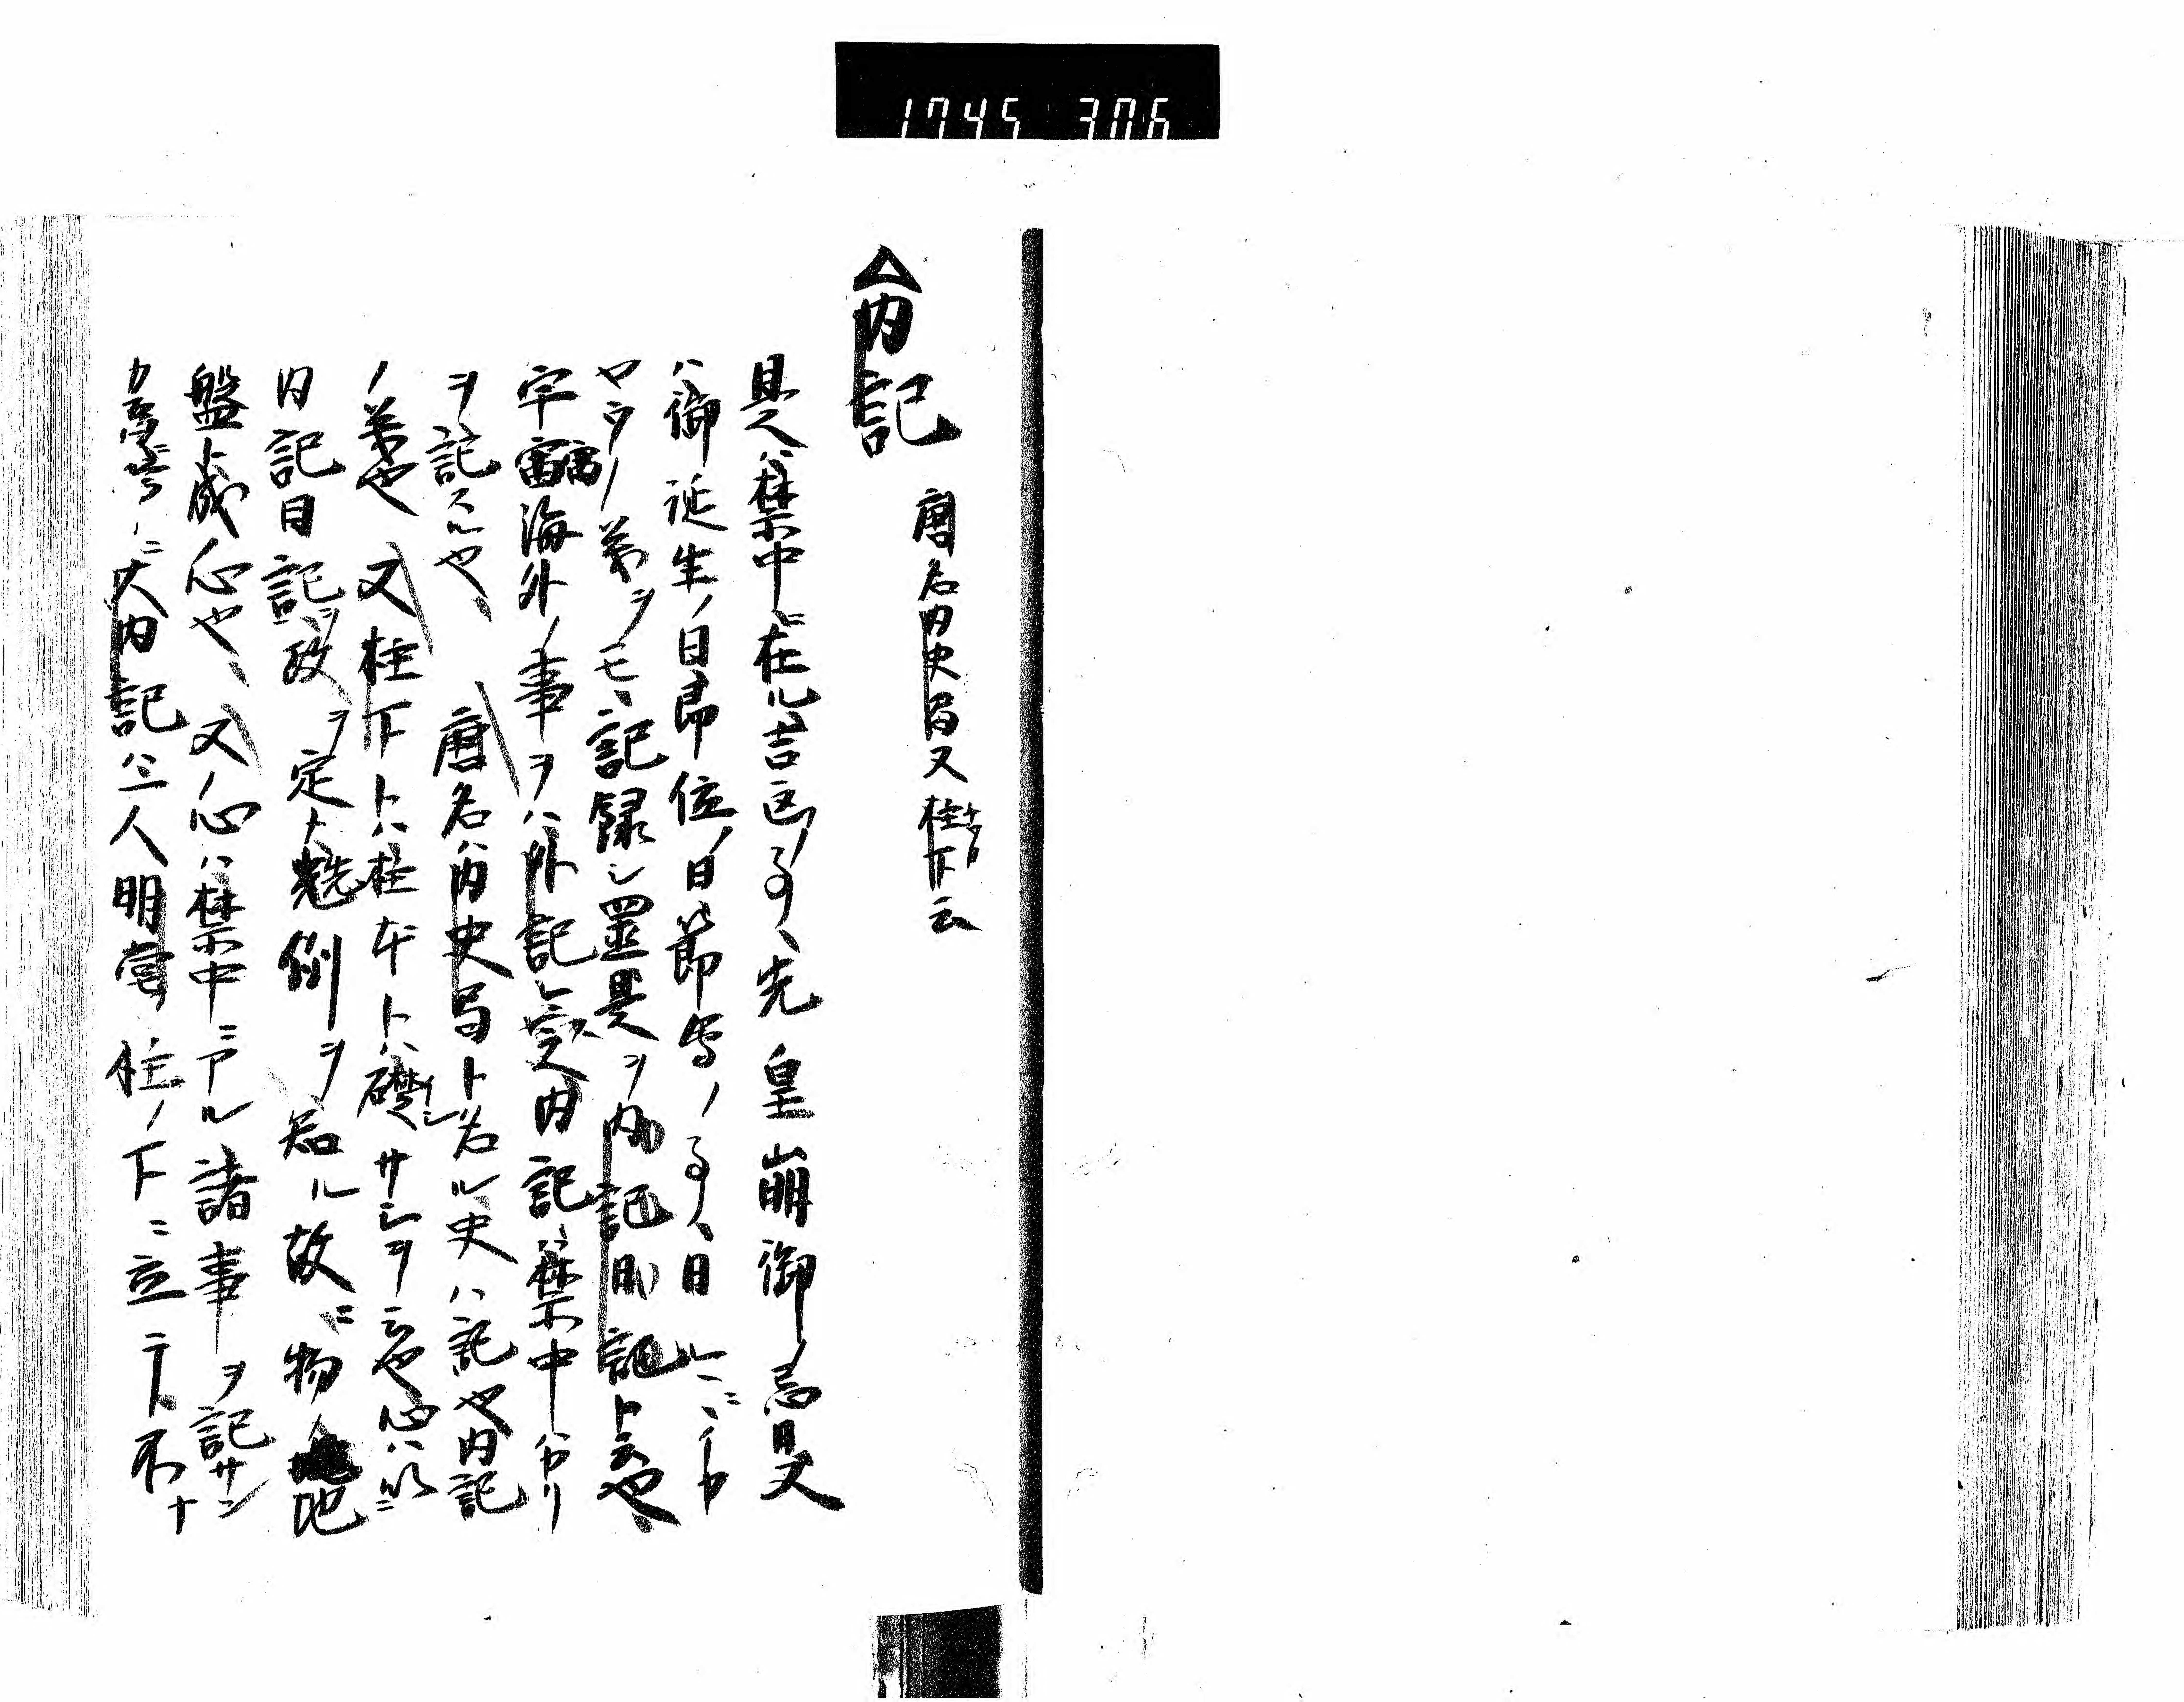 1745 306
△内記
唐名内史局又柱下云
是ハ禁中ニ在ル吉凶ノ事、先皇崩御ノ忌日又
ハ御誕生ノ日即位ノ日節会ノ事、日
ヤウノ第ヲモ、記録シ置是ヲ内記日記ト云也、
宇宙海外ノ事ヲハ外記之内記ハ禁中ハカリ
ヲ記スル也、唐名ハ内史局ト名ル史ハ記也内記
ノ第也 又柱下トハ柱ハトハ礎イシサシヲ云也心ハ
内記日記ヲ政ヲ定ト先例ヲ知ル故ニ物ノ地
盤ト成心也、又ノ心ハ禁中ニアル諸事ヲ記サン
カ為ニ大内記ハ二人明堂柱ノ下ニ立